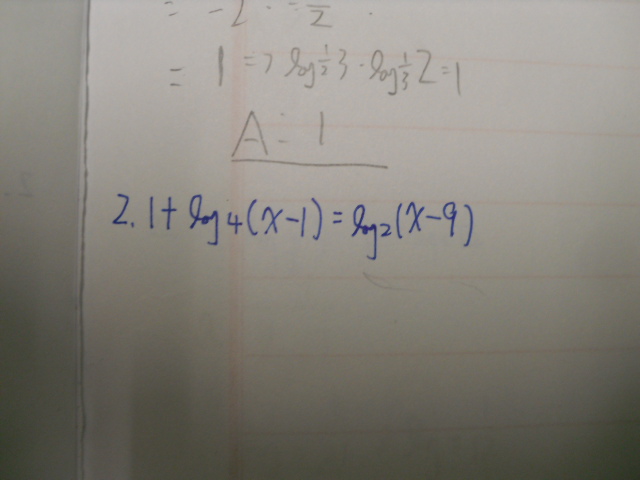 = -2 · -
= 1 => log½3 · log⅓2 = 1
A: 1
2. 1 + log₄(x-1) = log₂(x-9)